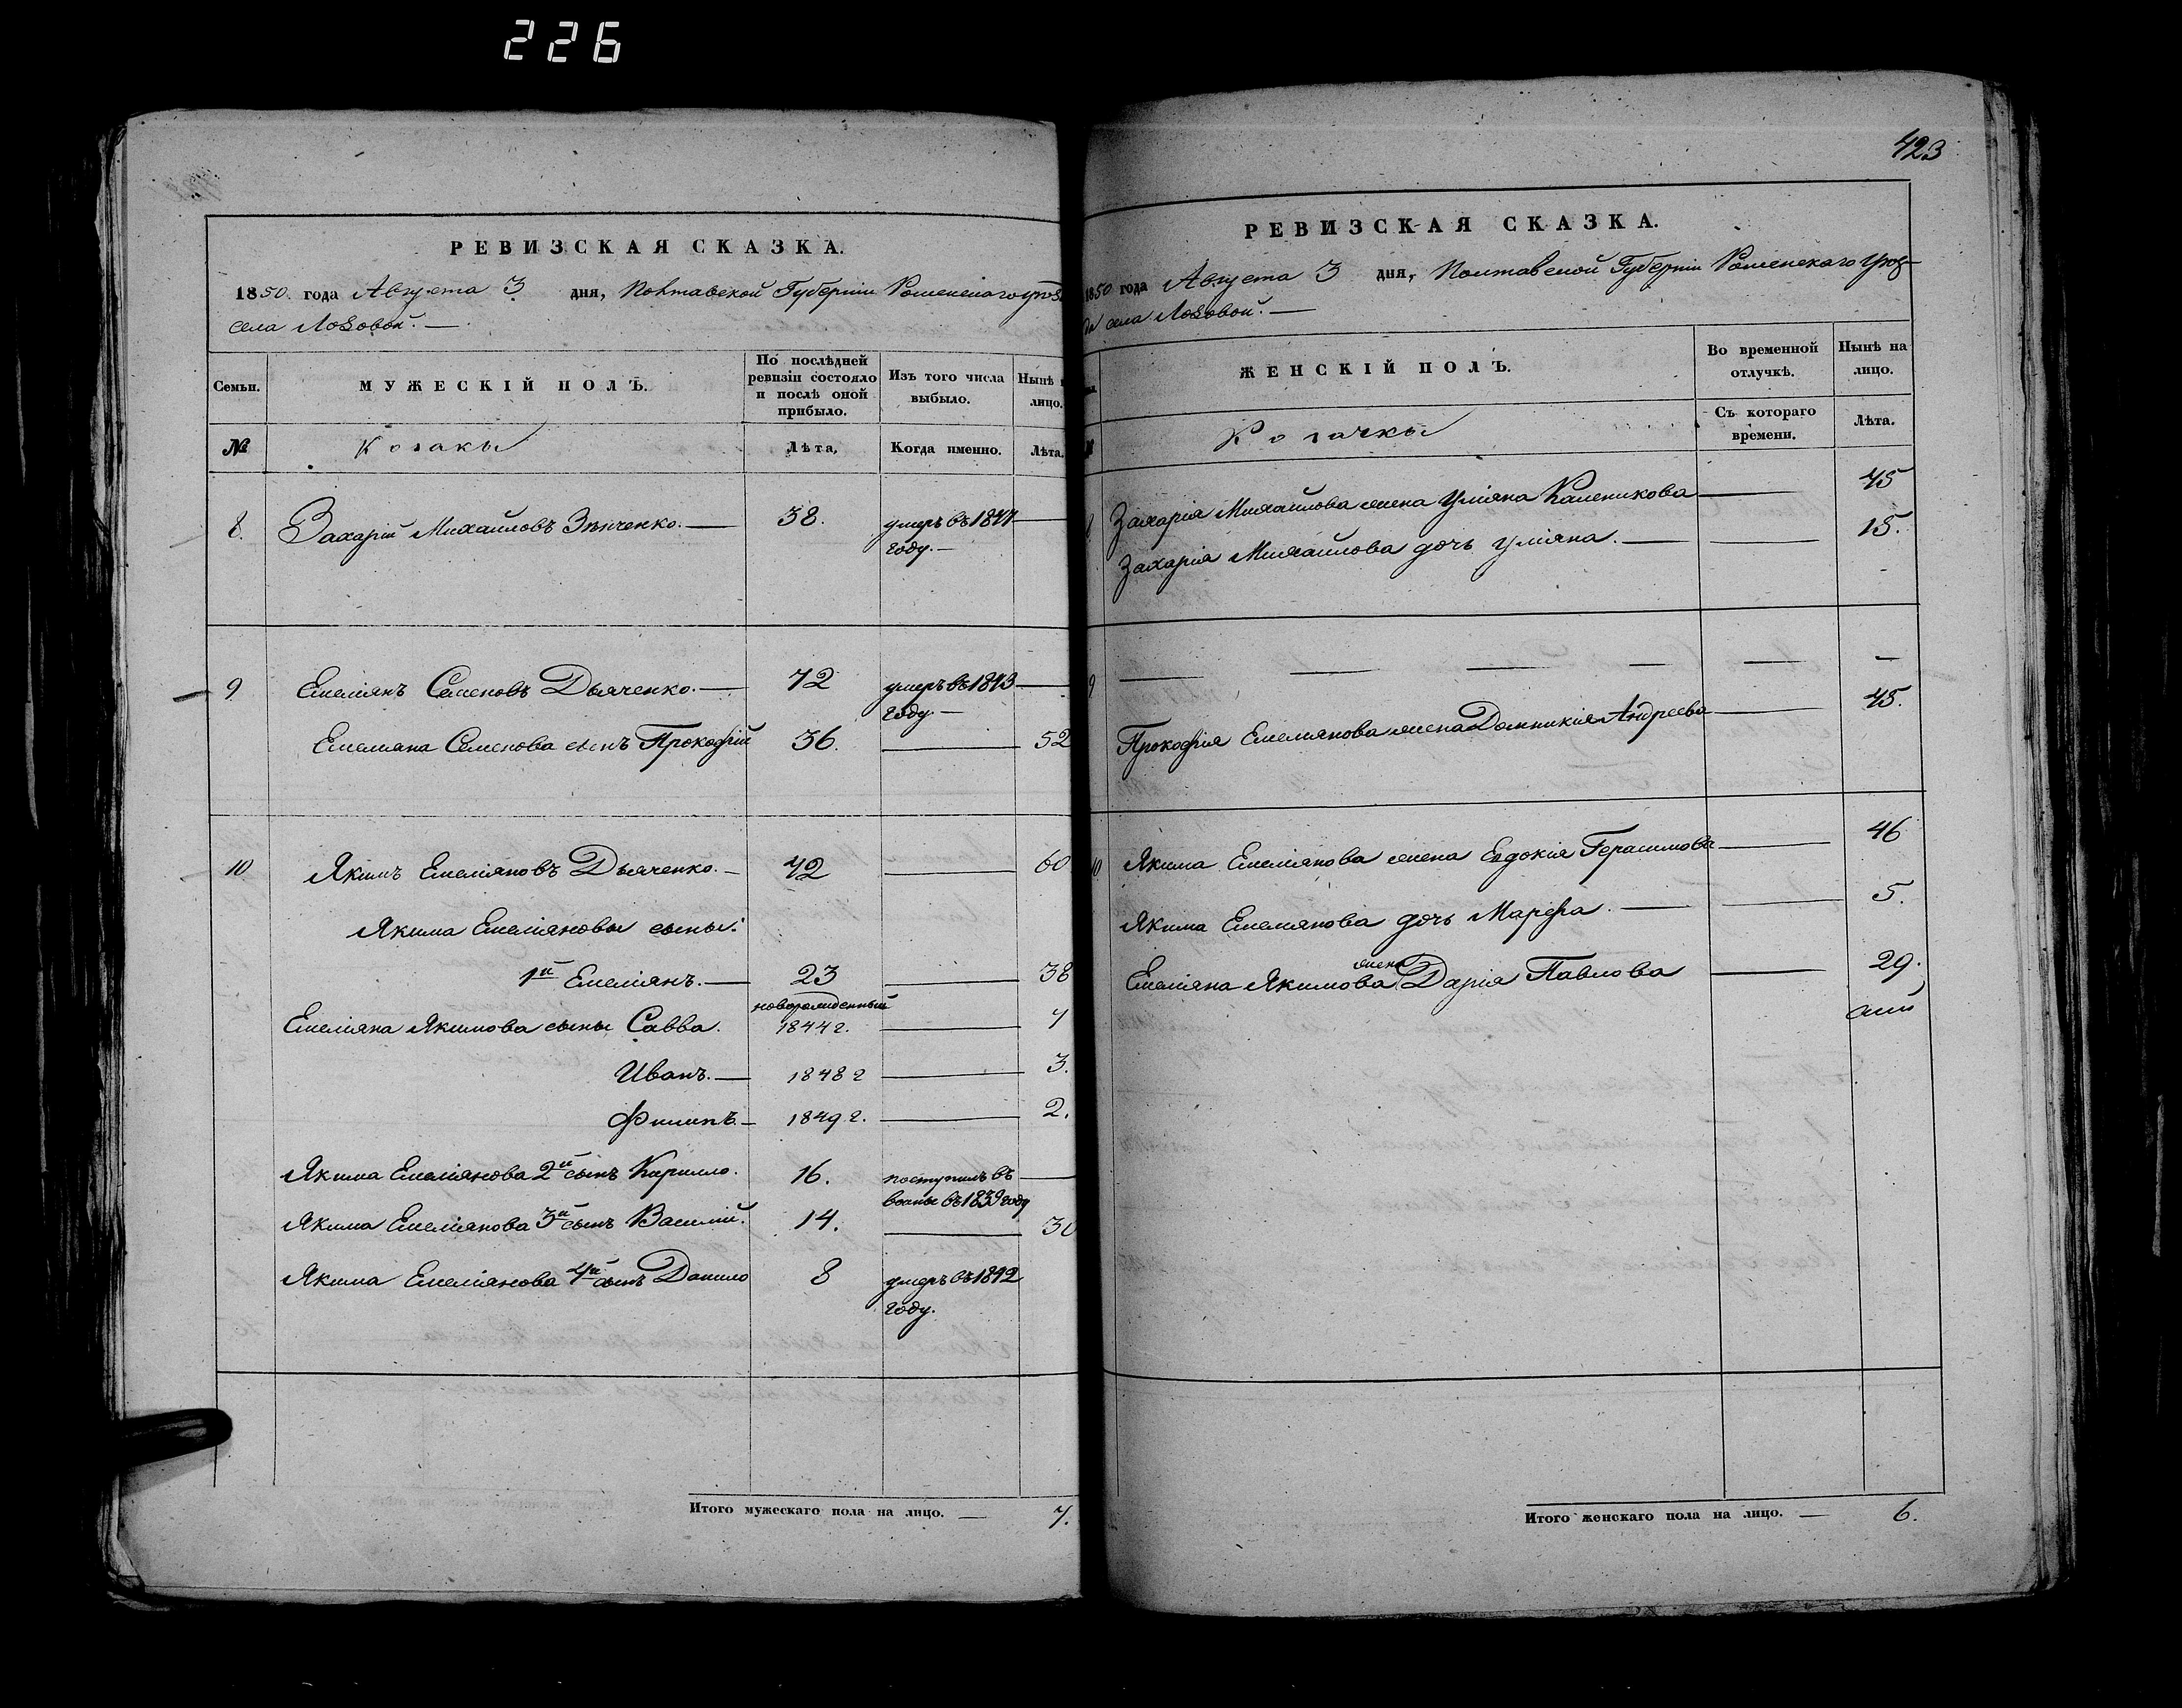 226
РЕВИЗСКАЯ СКАЗКА.
1850 года Августа 3 дня, Полтавской Губерніи Роменскаго уѣзда
села Лозовой. —
Семьи.
МУЖЕСКІЙ ПОЛЪ.
По послѣдней ревизіи состояло и послѣ оной прибыло.
Изъ того числа выбыло.
Нынѣ
лицо.
№
Козаки
Лѣта.
Когда именно.
Лѣта.
8. Захарій Михайловъ Зѣнченко. — 38. умеръ въ 1847 —
году. —
9 Емеліянъ Семеновъ Дьяченко. — 72 умеръ въ 1843 —
году. —
Емеліяна Семенова сынъ Прокофій 36. — 52
10 Якимъ Емеліяновъ Дьяченко. — 42 — 60
Якима Емеліяновы сыны:
1й Емеліянъ. — 23 — 38
новорожденный
Емеліяна Якимова сыны Савва. 1844 г. — 7
Иванъ. — 1848 г — 3.
Филипъ. — 1849 г. — 2.
Якима Емеліянова 2й сынъ Кирило. 16. поступилъ въ —
воины въ 1839 году
Якима Емеліянова 3й сынъ Василій. 14. — 30
Якима Емеліянова 4й сынъ Данило 8 умеръ въ 1842
году.
Итого мужескаго пола на лицо. — 7.
423
РЕВИЗСКАЯ СКАЗКА.
1850 года Августа 3 дня, Полтавской Губерніи Роменскаго уѣз-
да села Лозовой. —
ЖЕНСКІЙ ПОЛЪ.
Во временной отлучкѣ.
Нынѣ на лицо.
Козачки
Съ котораго времени.
Лѣта.
8 Захарія Михайлова жена Уліяна Каленикова — 45
Захарія Михайлова дочь Уліяна. — — 15.
9 — — — — — —
Прокофія Емеліянова жена Домникія Андреева — 45.
10 Якима Емеліянова жена Евдокія Герасимова — 46
Якима Емеліянова дочь Марфа. — — 5.
жена
Емеліяна Якимова Дарія Павлова — 29.
Итого женскаго пола на лицо. — 6.